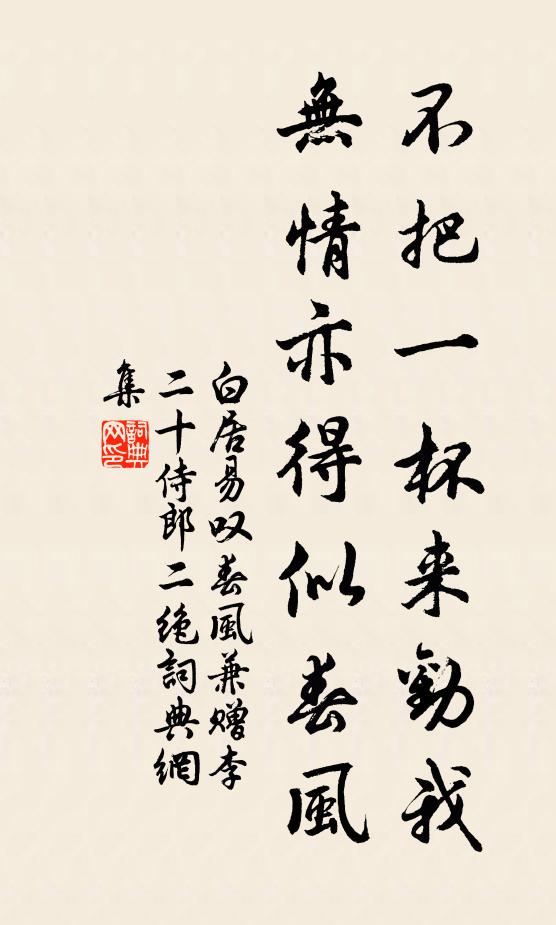 不把一杯来勸我
無情亦得似春風
白居易叹春風兼赠李
二十侍郎二绝詞典網
集
詞典
网印